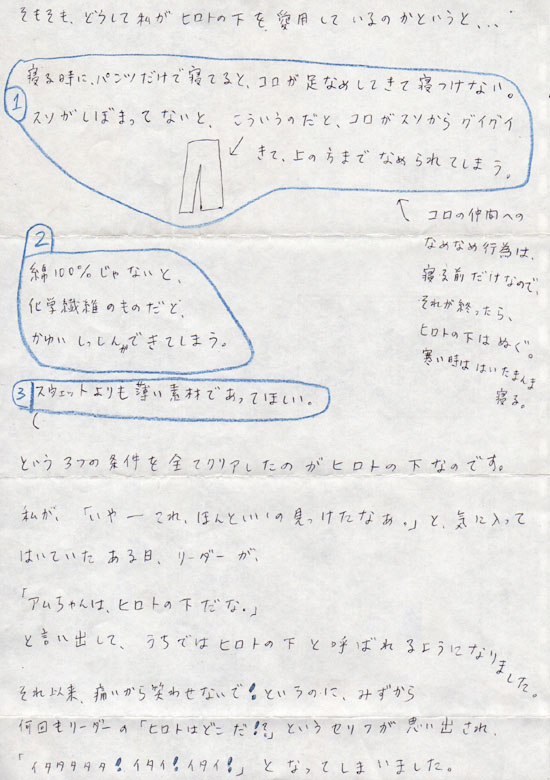 そもそも、どうして私がヒロトの下を愛用しているのかというと、...
1
寝る時に、パンツだけで寝てると、コロが足なめしてきて寝つけない。
スソがしぼまってないと、こういうのだと、コロがスソからグイグイ
きて、上の方までなめられてしまう。
コロの仲間への
なめなめ行為は、
寝る前だけなので、
それが終ったら、
ヒロトの下はぬぐ。
寒い時ははいたまんま
寝る。
2
綿100%じゃないと、
化学繊維のものだと、
かゆいしっしんができてしまう。
3 スウェットよりも薄い素材であってほしい。
という3つの条件を全てクリアしたのがヒロトの下なのです。
私が、「いやーこれ、ほんといいの見つけたなあ。」と、気に入って
はいていたある日、リーダーが、
「アムちゃんは、ヒロトの下だな。」
と言い出して、うちではヒロトの下と呼ばれるようになりました。
それ以来、痛いから笑わせないで!というのに、みずから
何回もリーダーの「ヒロトはどこだ!?」というセリフが思い出され、
「イタタタタタ!イタイ!イタイ!」となってしまいました。